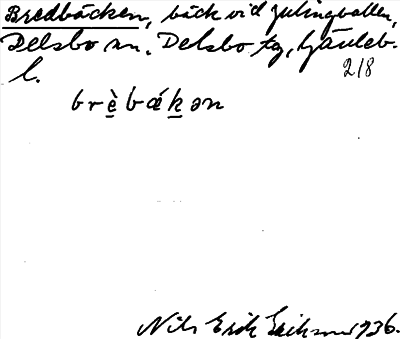 Bredbäcken, bäck vid Julingvallen,
Delsbo sn. Delsbo tg, Gävleb.
l. 2/8
brèbákən
Nils Erik Eriksson 1936.